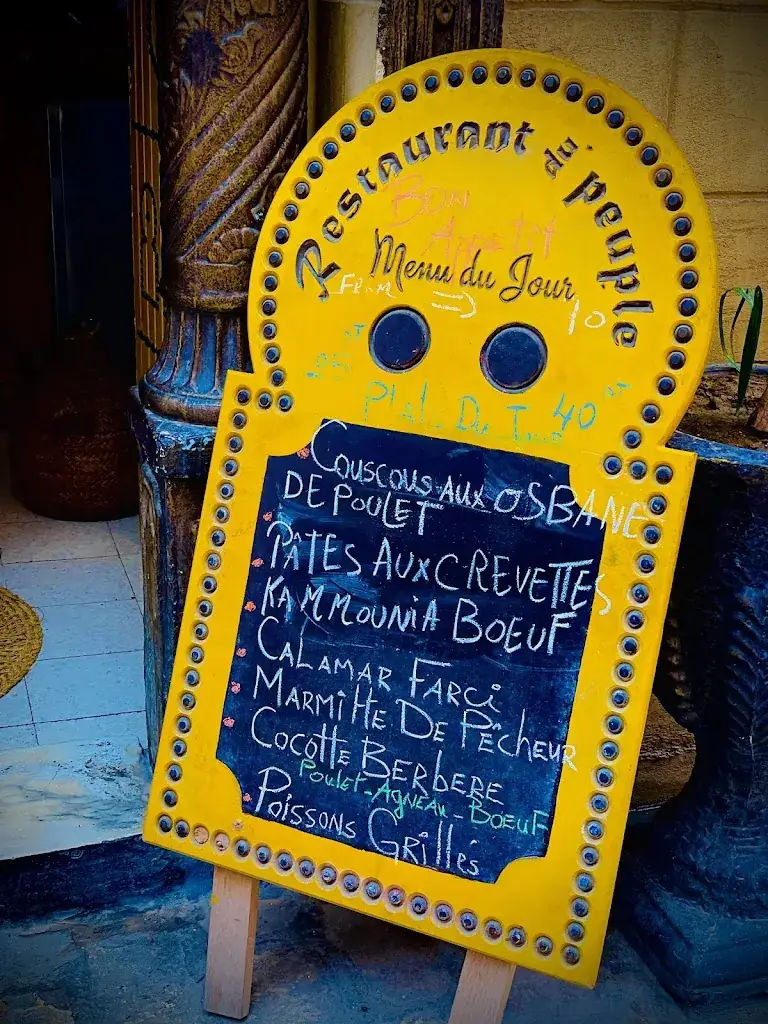 Restaurant du peuple
BON
Appetit
Menu du Jour
FROM => 10
25 DT
40 DT
Plat Du Jour
COUSCOUS AUX OSBANE
DE POULET
PÂTES AUX CREVETTES
KAMMOUNIA BOEUF
CALAMAR FARCi
MARMiTTE DE PÊCHEUR
COCOTTE BERBERE
POULET-AGNEAU-BOEUF
POISSONS GRillés